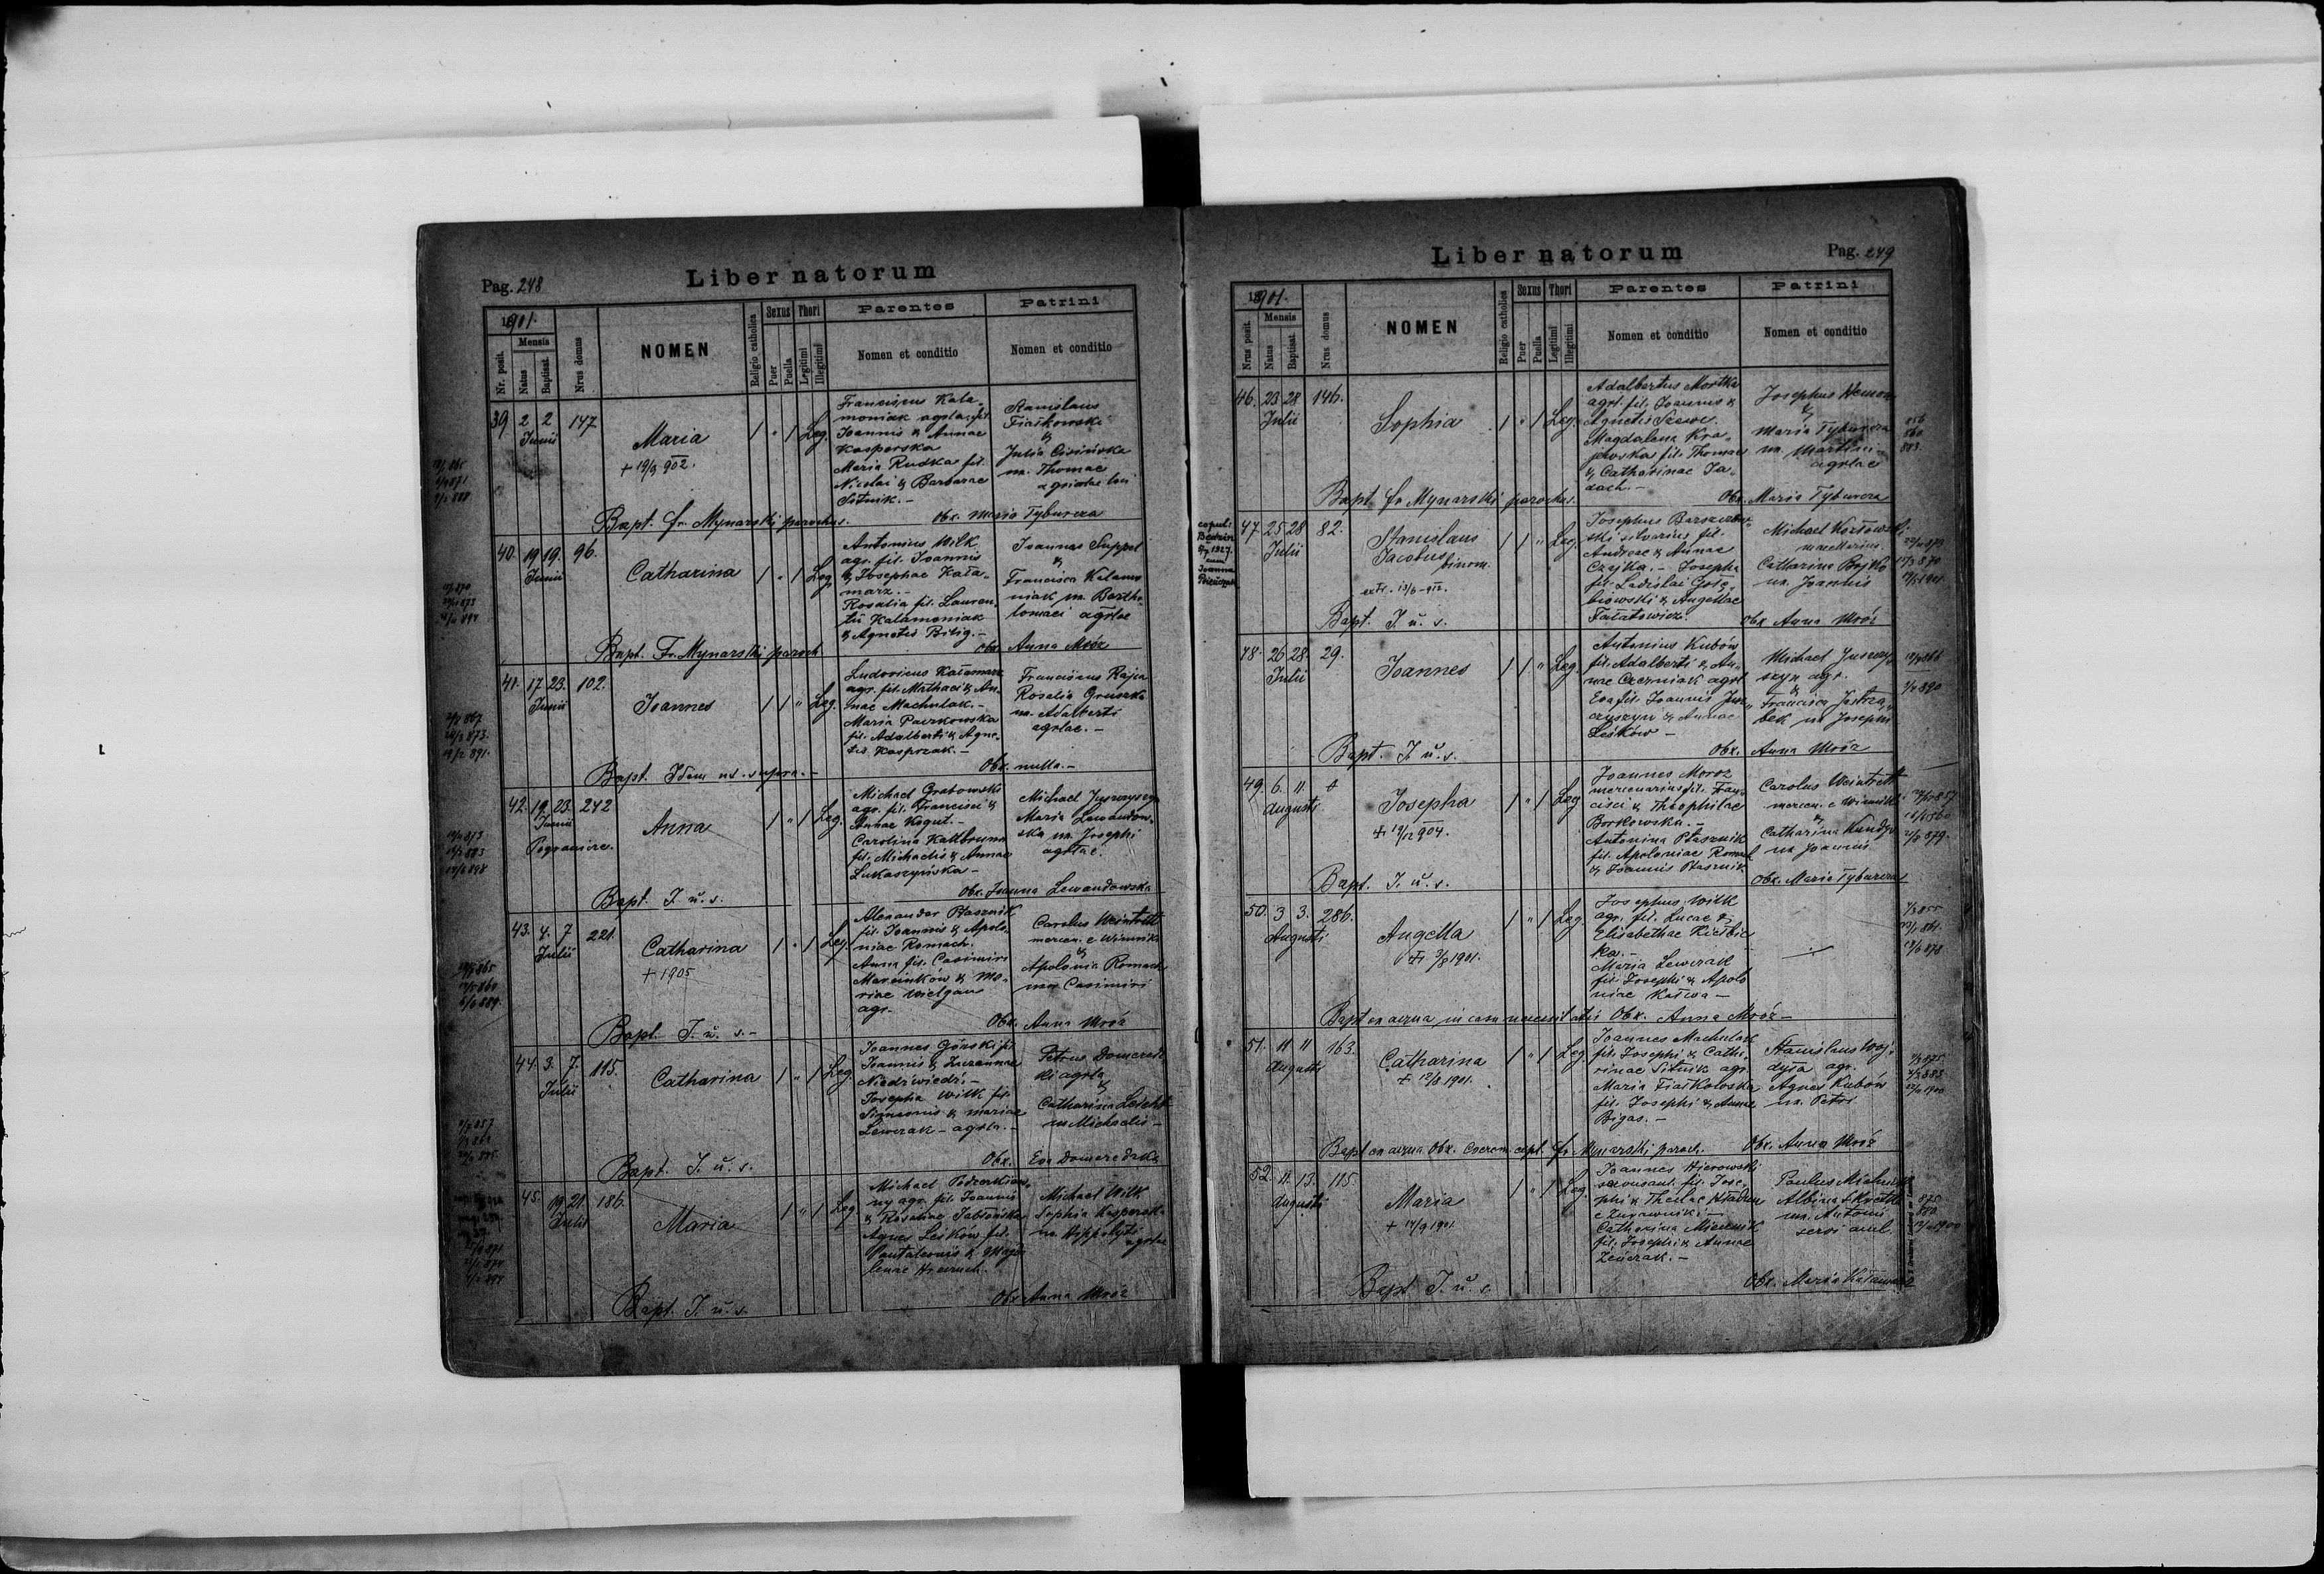 Pag. 248
Liber natorum
1901.
Nr. posit.
Mensis
Natus
Baptisat.
Nrus domus
NOMEN
Religio catholica
Sexus
Puer
Puella
Thori
Legitimi
Illegitimi
Parentes
Nomen et conditio
Patrini
Nomen et conditio
39 2 2 147
Junii
Maria
+ 19/9 902.
1 " 1 Leg.
Franciscus Kala-
moniak agrla. fil.
Joannis & Annae
Kasperska
Maria Rudka fil.
Nicolai & Barbarae
Sitnik. -
Stanislaus
Fiaskowski
&
Julia
m. Thomae
agricolae loci
Bapt. fr. Mynarski parochus.
Obx. Maria Tyburcza
40. 19 19. 96.
Junii
Catharina
1 " 1 Leg
Antonius Wilk
agr. fil. Joannis
& Josephae Kała-
marz. -
Rosalia fil. Lauren-
tii Kalamoniak
& Agnetis Bilig. -
Joannes Suppel
&
Francisca Kalamo
niak m. Bartho
lomaei agrlae
Bapt. Fr. Mynarski paroch
Obx Anna Mróz
41. 17 23. 102.
Junii
Joannes
1 1 " Leg.
Ludovicus Kałamarz
agr. fil. Mathaei & An-
nae Machulak. -
Maria Paczkowska
fil. Adalberti & Agne-
tis Kasprzak. -
Franciscus Kajca
Rosalia Gruszka
m. Adalberti
agrlae. -
Bapt. Idem ut. supra. -
Obx. nulla. -
42. 19. 23. 242
Junii
Pogranicze.
Anna
1 " 1 Leg.
Michael Grabowski
agr. fil. Francisci &
Annae Kogut. -
Carolina Kaltbrunn
fil. Michaelis & Annae
Lukaszyńska -
Michael Juszczyszyn
Maria Lewandow-
ska m. Josephi
agrlae.
Bapt. I. u. s.
Obx. Joanna Lewandowska
43. 4. 7 221.
Julii
Catharina
+ 1905
1 " 1 Leg.
Alexander Ptasznik
fil. Joannis & Apolo-
niae Romach.
Anna fil. Casimiri
Marcinków & Ma-
riae Wielgan
agr.
Carolus Weintritt
mercen. e Winniki
&
Apolonia Romach
uxor Casimiri
Bapt. I. u. s. -
Obx. Anna Mróz
44. 3. 7. 115.
Julii
Catharina
1 " 1 Leg
Joannes Górski fil.
Joannis & Zuzannae
Niedźwiedź. -
Josepha Wilk fil.
Simeonis & Mariae
Lewczak - agrla. -
Petrus Domerec
ki agrla
&
Catharina Leicht
m Michaelis -
Bapt. I. u. s.
Obx. Eva Domeredzka
45. 19. 21. 186.
Julii
Maria
1 " 1 Leg
Michael
ny agr. fil. Joannis
& Rosaliae Jabłońska
Agnes Leśków fil.
Pantaleonis & Magda
lenae
Michael Wilk
Sophia Kasperska
m. Hippolyti
agrlae
Bapt. I. u. s.
Obx Anna Mróz
Liber natorum
Pag. 249
1901.
Nrus posit.
Mensis
Natus
Baptisat.
Nrus domus
NOMEN
Religio catholica
Sexus
Puer
Puella
Thori
Legitimi
Illegitimi
Parentes
Nomen et conditio
Patrini
Nomen et conditio
46. 23 28 146.
Julii
Sophia
1 " 1 Leg.
Adalbertus Mostka
agr. fil. Joannis &
Agnetis Szewc.
Magdalena Kra-
jewska fil. Thomae
& Catharinae Ja-
dach. -
Josephus
&
Maria Tyburcza
m. Martini
agrlae
Bapt. fr. Mynarski parochus.
Obx. Maria Tyburcza
47. 25 28 82.
Julii
Stanislaus
Jacobus binom.
extr. 13/6 912.
1 1 " Leg.
Josephus Barszczew-
ski silvarius fil.
Andreae & Annae
Czajka. - Josepha
fil. Ladislai Gołę-
biowski & Angellae
Fałatowicz.
Michael Kozłowski
Catharina Bojko
m. Joannis
Bapt. I. u. s.
Obx Anna Mróz
48. 26 28. 29.
Julii
Joannes
1 1 " Leg
Antonius Kubów
fil. Adalberti & An-
nae Czerniak agrl
Eva fil. Joannis Jusz-
czyszyn & Annae
Leśków -
Michael Juszczy-
szyn agr.
&
Francisca Jastrzę-
bek m Josephi
Bapt. I. u. s.
Obx. Anna Mróz
49. 6. 11.
Augusti
Josepha
+ 19/12 904.
1 " 1 Leg
Joannes Moroz
mercenarius fil. Fran-
cisci & Theophilae
Borkowska. -
Antonina Ptasznik
fil. Apoloniae Romach
& Joannis Ptasznik
Carolus Weintritt
mercen. e Winniki
&
Catharina
m Joannis
Bapt. I. u. s.
Obx. Maria Tyburcza
50. 3 3. 286.
Augusti
Angella
+ 3/8 1901.
1 " 1 Leg.
Josephus Wilk
agr. fil. Lucae &
Elisabethae Kiełbic
ka. -
Maria Lewczak
fil Josephi & Apolo
niae Kałwa -
Bapt ex aqua in casu necessitatis Obx. Anna Mróz -
51. 11 11 163.
Augusti
Catharina
+ 12/8 1901.
1 " 1 Leg.
Joannes Machulak
fil. Josephi & Catha-
rinae Sitnik agr.
Maria Fiaskowska
fil. Josephi & Annae
Bigas. -
Stanislaus Woj-
dyła agr.
Agnes Kubów
m. Petri
Bapt ex aqua Obx. Cerem. expl. fr. Mynarski paroch.
Obx. Anna Mróz
52. 11. 13. 115.
Augusti
Maria
+ 14/9 1901.
1 " 1 Leg.
Joannes Hierowski
fil. Jose-
phi & Theclae
e Żurawniki -
Catharina
fil. Josephi & Annae
Paulus
Albina
m. Antonii
servi aul.
Bapt. I. u. s.
Obx. Maria Kałamarz